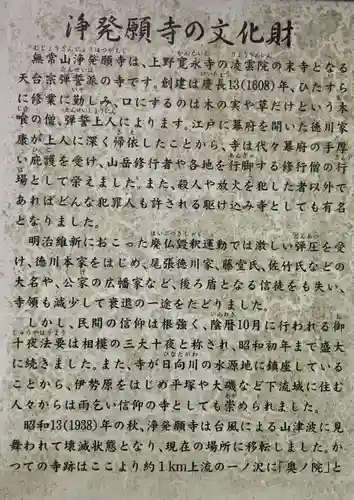 浄発願寺の文化財
むじょうざんじょうほつがんじ かんえいじ りょううんいん
無常山浄発願寺は、上野寛永寺の凌雲院の末寺となる
天台宗弾誓派の寺です。創建は慶長13(1608)年、ひたすら
に修業に勤しみ、口にするのは木の実や草だけという木
食の僧、弾誓上人によります。江戸に幕府を開いた徳川家
康が上人に深く帰依したことから、寺は代々幕府の手厚
い庇護を受け、山岳修行者や各地を行脚する修行僧の行
場として栄えました。また、殺人や放火を犯した者以外で
あればどんな犯罪人も許される駆け込み寺としても有名
となりました。
はいぶつきしゃく だんあつ
明治維新におこった廃仏毀釈運動では激しい弾圧を受
け、徳川本家をはじめ、尾張徳川家、藤堂氏、佐竹氏などの
大名や、公家の広幡家など、後ろ盾となる信徒をも失い、
寺領も減少して衰退の一途をたどりました。
いんれき お
しかし、民間の信仰は根強く、陰暦10月に行われる御
じゅうやほうよう
十夜法要は相模の三大十夜と称され、昭和初年まで盛大
ひなたがわ
に続きました。また、寺が日向川の水源地に鎮座している
ことから、伊勢原をはじめ平塚や大磯など下流域に住む
あが
人々からは雨乞い信仰の寺としても崇められました。
昭和13(1938)年の秋、浄発願寺は台風による山津波に見
舞われて壊滅状態となり、現在の場所に移転しました。か
つての寺跡はここより約1km上流の一ノ沢に「奥ノ院」と